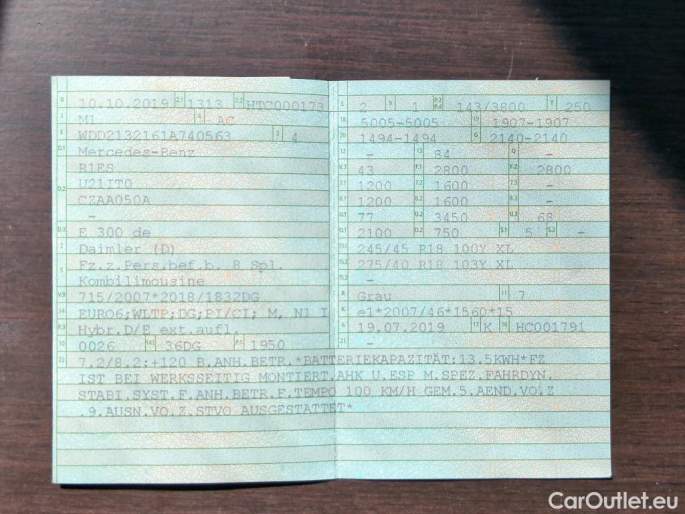 10.10.2019 1313 HTC000173
M1 AC
WDD2132161A740563 4
Mercedes-Benz
R1ES
U21IT0
CZAA050A
-
E 300 de
Daimler (D)
Fz.z.Pers.bef.b. 8 Spl.
Kombilimousine
715/2007*2018/1832DG
EURO6;WLTP;DG;PI/CI; M, N1 I
Hybr.D/E ext.aufl.
0026 36DG 1950
2 1 143/3800 250
5005-5005 1907-1907
1494-1494 2140-2140
- 84 -
43 2800 2800
1200 1600 -
1200 1600 -
77 3450 68
2100 750 5 -
245/45 R18 100Y XL
275/40 R18 103Y XL
-
Grau 7
e1*2007/46*1560*15
19.07.2019 K HC001791
-
7.2/8.2:+120 B.ANH.BETR.*BATTERIEKAPAZITÄT:13.5KWH*FZ
IST BEI WERKSSEITIG MONTIERT.AHK U.ESP M.SPEZ.FAHRDYN.
STABI.SYST.F.ANH.BETR.F.TEMPO 100 KM/H GEM.5.AEND.VO.Z
.9.AUSN.VO.Z.STVO AUSGESTATTET*
CarOutlet.eu